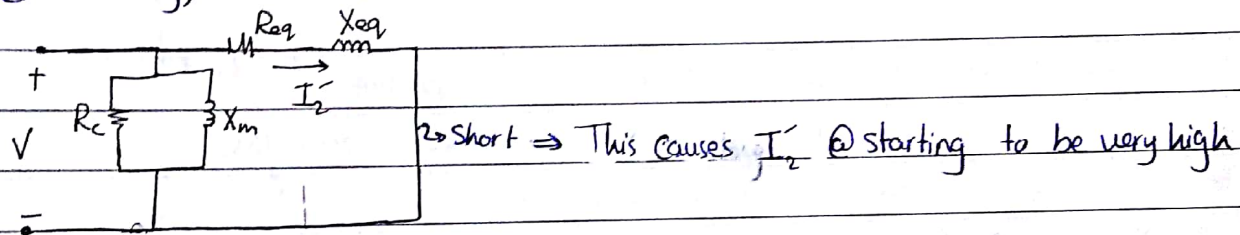 Req Xeq
+
I₂′
Rc Xm
V
Short ⇒ This causes I₂′ @ starting to be very high
–